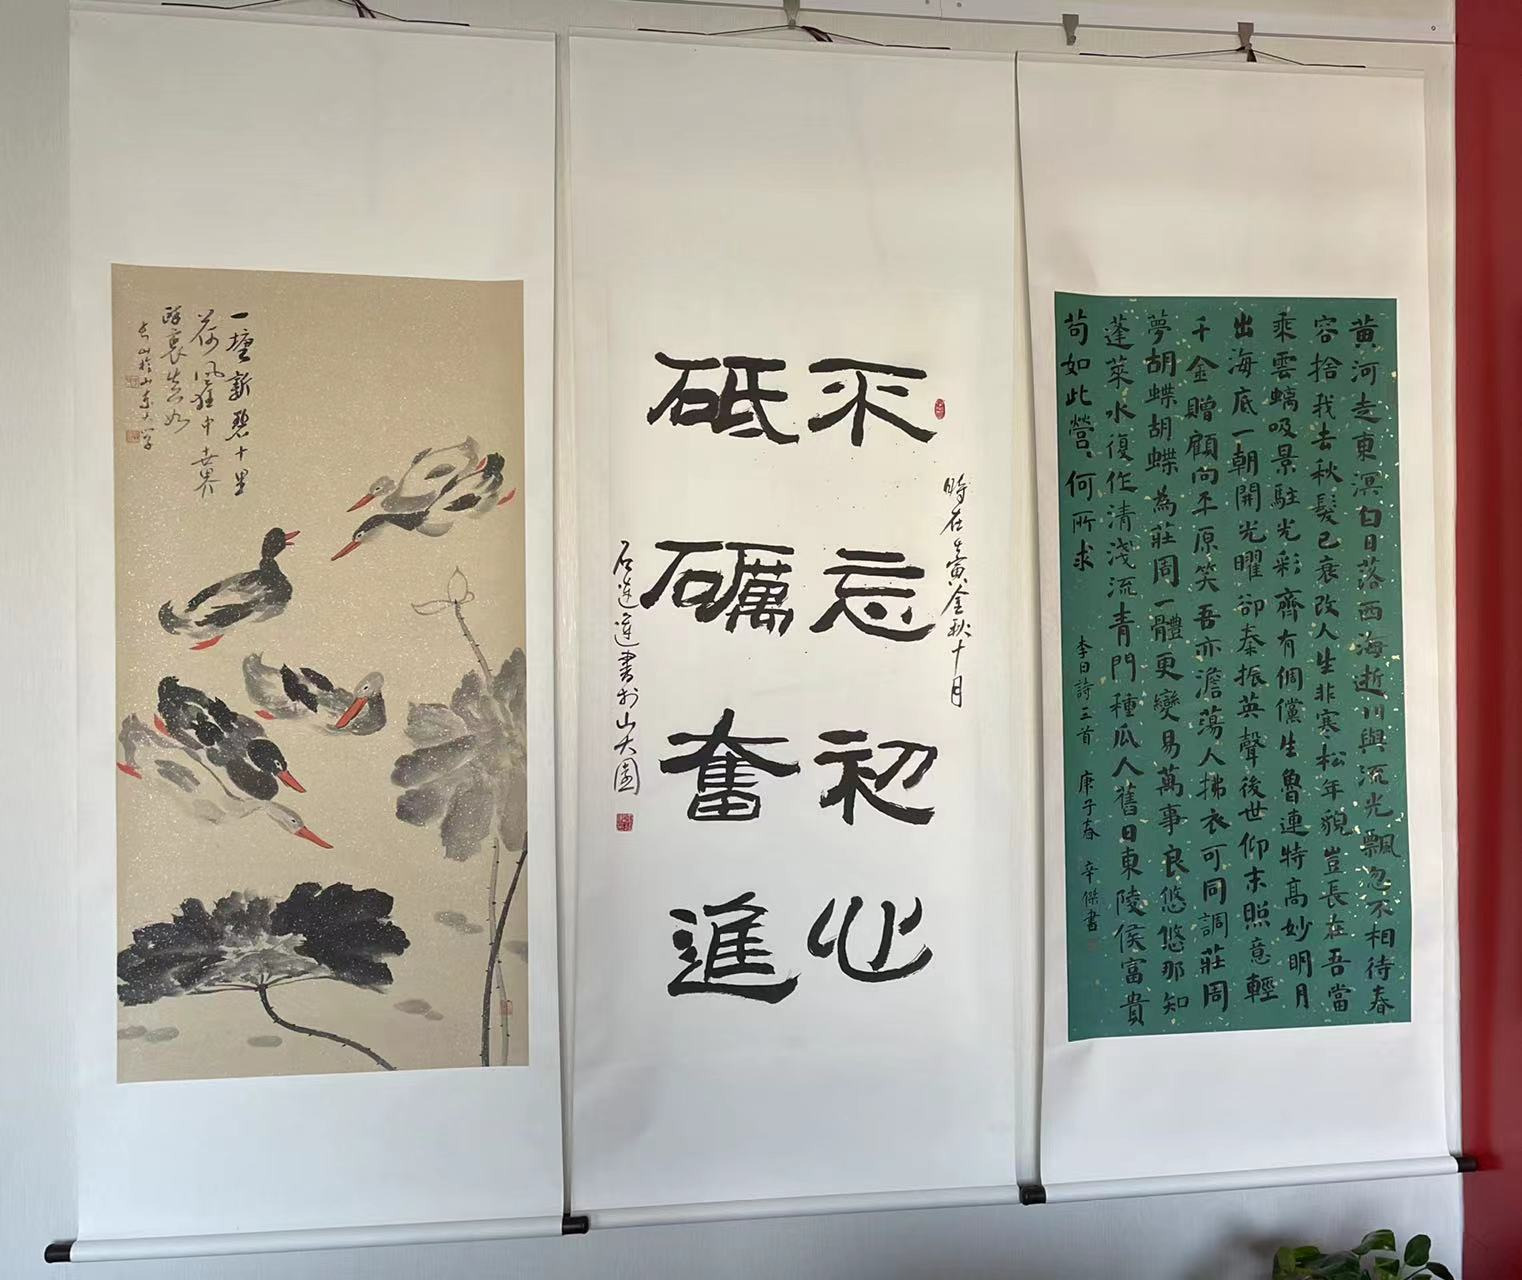 一塘新碧十里
荷風狂中世界
醉裏
山東大學
時在黃金秋十月
不忘初心
砥礪奮進
石連運書於山大園
黃河走東溟白日落西海逝川與流光飄忽不相待春
容捨我去秋髮已衰改人生非寒松年貌豈長在吾當
乘雲螭吸景駐光彩齊有倜儻生魯連特高妙明月
出海底一朝開光曜卻秦振英聲後世仰末照意輕
千金贈顧向平原笑吾亦澹蕩人拂衣可同調莊周
夢胡蝶胡蝶為莊周一體更變易萬事良悠悠那知
蓬萊水復作清淺流青門種瓜人舊日東陵侯富貴
苟如此營、何所求
李白詩三首 庚子春 辛傑書